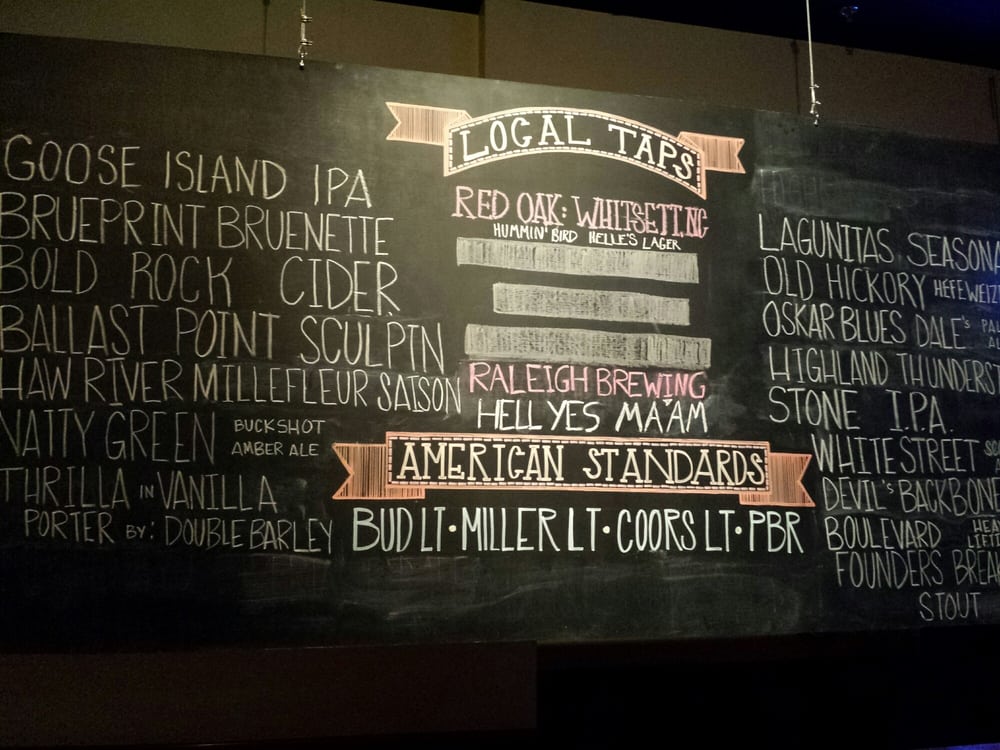 GOOSE ISLAND IPA
BRUEPRINT BRUENETTE
BOLD ROCK CIDER
BALLAST POINT SCULPIN
HAW RIVER MILLEFLEUR SAISON
NATTY GREEN BUCKSHOT
AMBER ALE
THRILLA IN VANILLA
PORTER BY: DOUBLE BARLEY
LOCAL TAPS
RED OAK: WHITSETT, NC
HUMMIN' BIRD HELLE'S LAGER
RALEIGH BREWING
HELL YES MA'AM
AMERICAN STANDARDS
BUD LT • MILLER LT • COORS LT • PBR
LAGUNITAS SEASONA
OLD HICKORY HEFEWEIZ
OSKAR BLUES DALE'S PA
AL
HIGHLAND THUNDERST
STONE I.P.A.
WHITE STREET
DEVIL'S BACKBONE
BOULEVARD HEA
FOUNDERS BREA
STOUT